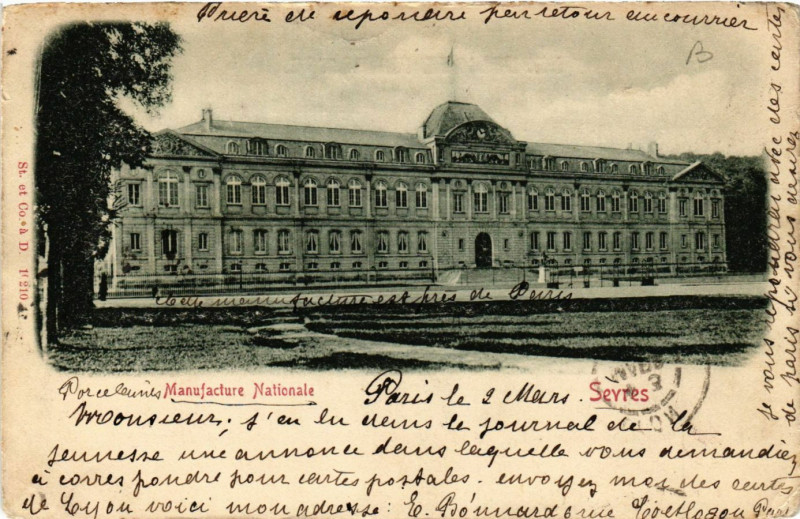 Prière de repondre par retour du courrier
B
St. et Co. à D. 1210
Cette manufacture est près de Paris
Porcelaines Manufacture Nationale
Sevres
Paris le 2 Mars.
Monsieur, j'ai lu dans le journal de la
jeunesse une annonce dans laquelle vous demandiez
à correspondre pour cartes postales. envoyez moi des cartes
de Lyon voici mon adresse: E. Bonnard 2 rue Paris
je vous répondrai avec des cartes
de paris si vous